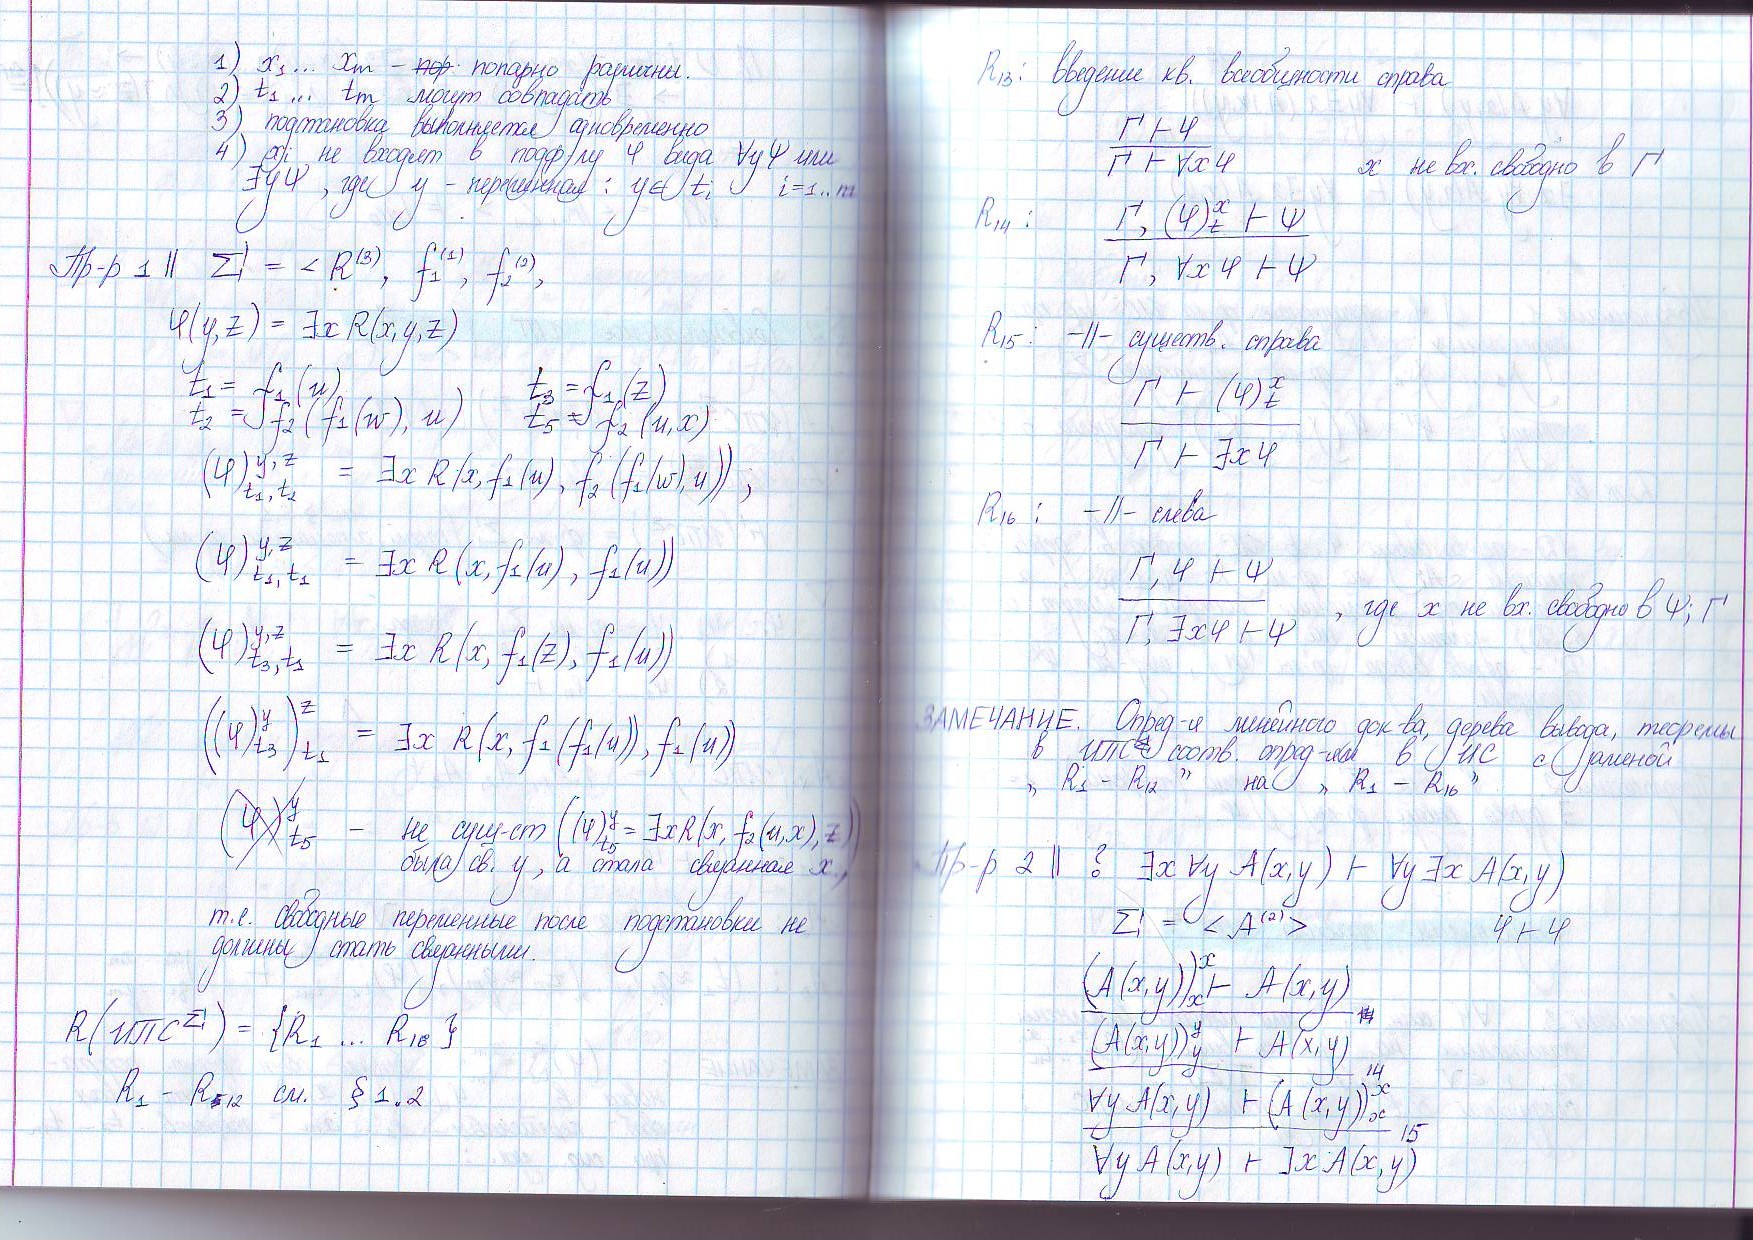 1) x₁... xₘ – попарно различны.
2) t₁... tₘ могут совпадать
3) подстановка выполняется одновременно
4) xᵢ не входят в подф/лу φ вида ∀yΨ или
∃yΨ, где y – переменная : y ∈ tᵢ i=1..m
Пр-р 1 || Σ = < R⁽³⁾, f₁⁽¹⁾, f₂⁽²⁾,
φ(y,z) = ∃x R(x,y,z)
t₁ = f₁(u) t₃ = f₁(z)
t₂ = f₂(f₁(w), u) t₅ = f₂(u,x)
(φ)^{y,z}_{t₁,t₂} = ∃x R(x, f₁(u), f₂(f₁(w),u));
(φ)^{y,z}_{t₁,t₁} = ∃x R(x, f₁(u), f₁(u))
(φ)^{y,z}_{t₃,t₁} = ∃x R(x, f₁(z), f₁(u))
((φ)^{y}_{t₃})^{z}_{t₁} = ∃x R(x, f₁(f₁(u)), f₁(u))
(φ)^{y}_{t₅} – не сущ-ст ((φ)^{y}_{t₅} = ∃xR(x, f₂(u,x), z))
была св. y, а стала связанная x,
т.е. свободные переменные после подстановки не
должны стать связанными.
R(ИПС^Σ) = {R₁ ... R₁₆}
R₁ – R₁₂ см. § 1.2
R₁₃: введение кв. всеобщности справа
Γ ⊢ φ
Γ ⊢ ∀xφ x не вх. свободно в Γ
R₁₄: Γ, (φ)^{x}_{t} ⊢ Ψ
Γ, ∀xφ ⊢ Ψ
R₁₅: –||– существ. справа
Γ ⊢ (φ)^{x}_{t}
Γ ⊢ ∃xφ
R₁₆: –||– слева
Γ, φ ⊢ Ψ
Γ, ∃xφ ⊢ Ψ , где x не вх. свободно в Ψ; Γ
ЗАМЕЧАНИЕ. Опред-я линейного док-ва, дерева вывода, теоремы
в ИПС соотв. опред-ям в ИС с заменой
„R₁ – R₁₂” на „R₁ – R₁₆”
Пр-р 2 || ? ∃x ∀y A(x,y) ⊢ ∀y ∃x A(x,y)
Σ = <A⁽²⁾> φ ⊢ φ
(A(x,y))^{x}_{x} ⊢ A(x,y)
(A(x,y))^{y}_{y} ⊢ A(x,y)
14
∀y A(x,y) ⊢ (A(x,y))^{x}_{x}
15
∀y A(x,y) ⊢ ∃x A(x,y)